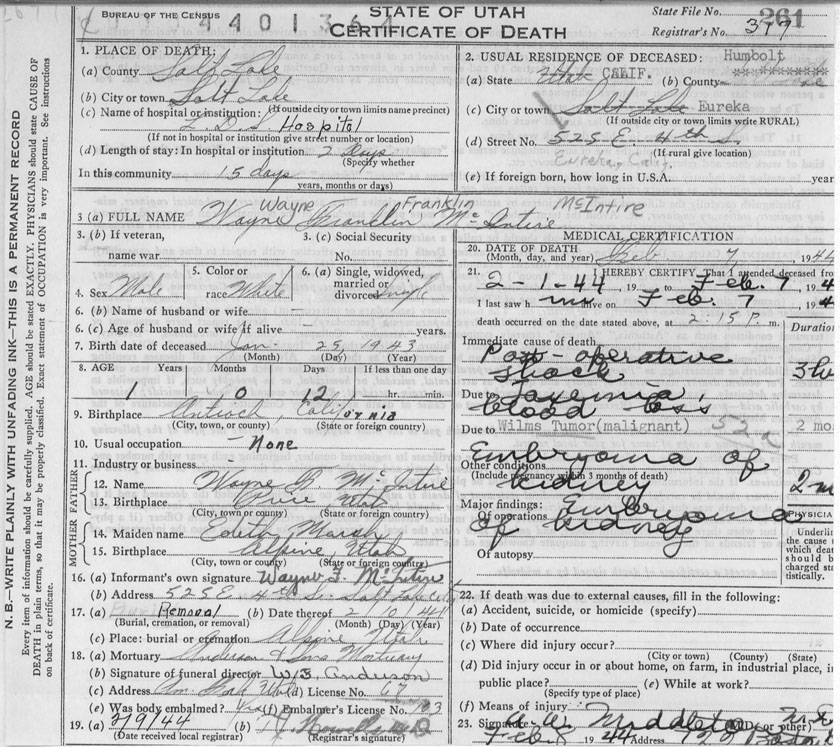 BUREAU OF THE CENSUS
4401364
STATE OF UTAH
CERTIFICATE OF DEATH
State File No. 261
Registrar's No. 377
N. B.—WRITE PLAINLY WITH UNFADING INK—THIS IS A PERMANENT RECORD
Every item of information should be carefully supplied. AGE should be stated EXACTLY. PHYSICIANS should state CAUSE OF
DEATH in plain terms, so that it may be properly classified. Exact statement of OCCUPATION is very important. See instructions
on back of certificate.
1. PLACE OF DEATH:
(a) County Salt Lake
(b) City or town Salt Lake
(If outside city or town limits name precinct)
(c) Name of hospital or institution:
L. D. S. Hospital
(If not in hospital or institution give street number or location)
(d) Length of stay: In hospital or institution 2 days
(Specify whether
In this community 15 days
years, months or days)
2. USUAL RESIDENCE OF DECEASED: Humbolt
(a) State Utah CALIF. (b) County Lake
(c) City or town Salt Lake Eureka
(If outside city or town limits write RURAL)
(d) Street No. 525 E. 4th S.
Eureka, Cal. (If rural give location)
(e) If foreign born, how long in U.S.A. year
Wayne Franklin McIntire
3 (a) FULL NAME Wayne Franklin McIntire
3. (b) If veteran,
name war
3. (c) Social Security
No.
4. Sex Male
5. Color or
race White
6. (a) Single, widowed,
married or
divorced Single
6. (b) Name of husband or wife
6. (c) Age of husband or wife if alive years.
7. Birth date of deceased Jan. 25, 1943
(Month) (Day) (Year)
8. AGE Years Months Days If less than one day
1 0 12 hr. min.
9. Birthplace Antioch, California
(City, town, or county) (State or foreign country)
10. Usual occupation - None
11. Industry or business -
FATHER
12. Name Wayne F. McIntire
13. Birthplace Price, Utah
(City, town or county) (State or foreign country)
MOTHER
14. Maiden name Edith Marsh
15. Birthplace Alpine, Utah
(City, town or county) (State or foreign country)
16. (a) Informant's own signature Wayne F. McIntire
(b) Address 525 E. 4th S. Salt Lake City
17. (a) Burial Removal (b) Date thereof 2 10 44
(Burial, cremation, or removal) (Month) (Day) (Year)
(c) Place: burial or cremation Alpine Utah
18. (a) Mortuary Anderson & Sons Mortuary
(b) Signature of funeral director W. S. Anderson
(c) Address Am. Fork Utah (d) License No. 67
(e) Was body embalmed? Yes (f) Embalmer's License No. 193
19. (a) 2/9/44 (b)
(Date received local registrar) (Registrar's signature)
MEDICAL CERTIFICATION
20. DATE OF DEATH
(Month, day, and year) Feb 7, 1944
21. I HEREBY CERTIFY, That I attended deceased fro
2-1-44, 19 to Feb. 7, 194
I last saw him alive on Feb. 7, 194
death occurred on the date stated above, at 2:15 P. m.
Duration
Immediate cause of death
Post-operative
shock
Due to Toxemia,
blood loss
Due to Wilms Tumor(malignant) 52a 2 mo
Embryoma of
Other conditions
(Include pregnancy within 3 months of death)
kidney
Major findings: Embryoma
Of operations
of kidney
Of autopsy
PHYSICIA
Underlin
the cause t
which deat
should b
charged sta
tistically.
22. If death was due to external causes, fill in the following:
(a) Accident, suicide, or homicide (specify)
(b) Date of occurrence
(c) Where did injury occur?
(City or town) (County) (State)
(d) Did injury occur in or about home, on farm, in industrial place, i
public place? (e) While at work?
(Specify type of place)
(f) Means of injury
23. Signature A. W. Middleton (M.D. or other)
Feb. 8 1944 Address